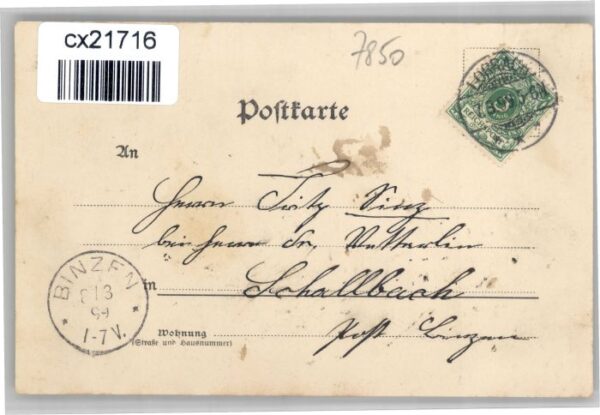 cx21716
7850
Postkarte
An
Herrn Fritz Sinz
bei Herrn Dr. Vetterlin
in Schallbach
Wohnung
(Straße und Hausnummer)
Post Binzen
BINZEN
8 1 3
99
1-7V.